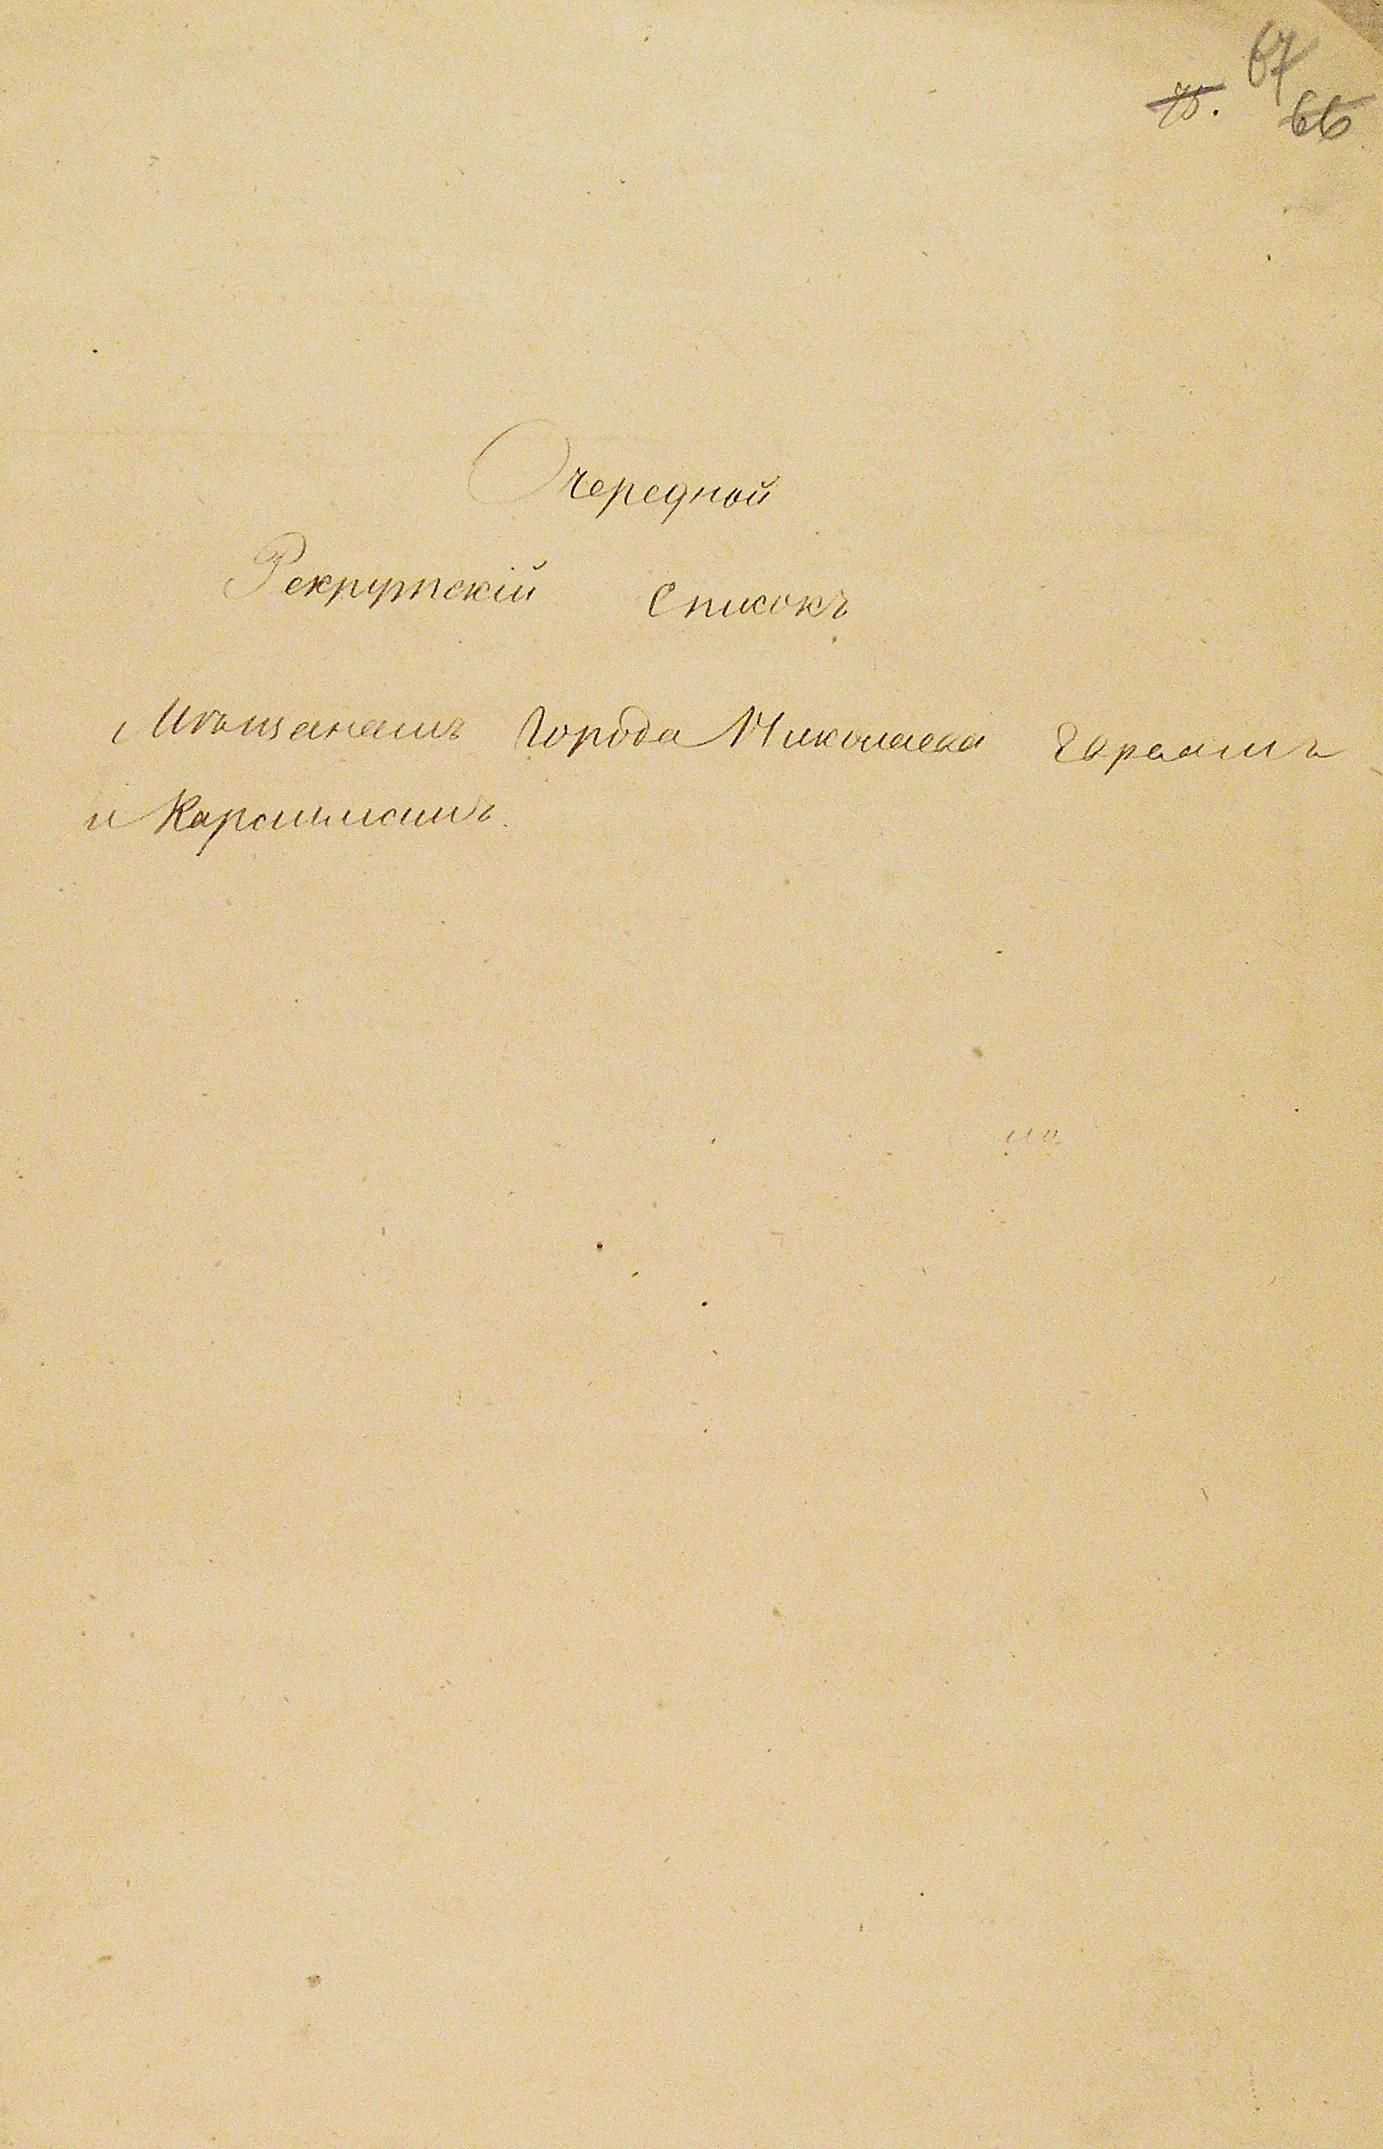 67
75.
66
Очередной
Рекрутскій Списокъ
Мѣщанамъ Города Николаева Евреямъ
и Караимамъ.